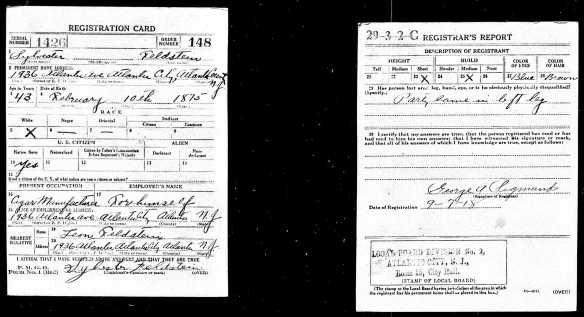 REGISTRATION CARD
SERIAL NUMBER 1426
ORDER NUMBER 148
Sylvester Feldstein
PERMANENT HOME ADDRESS
1936 Atlantic Ave Atlantic City Atlantic N.J
Age in Years
Date of Birth
43 February 10th 1875
RACE
White
Negro
Oriental
Indian
Citizen
Noncitizen
5 X 6 — 7 — 8 — 9 —
U. S. CITIZEN
ALIEN
Native Born
Naturalized
Citizen by Father's Naturalization Before Registrant's Majority
Declarant
Non-declarant
10 Yes 11 12 13 14
15 If not a citizen of the U. S., of what nation are you a citizen or subject?
PRESENT OCCUPATION
EMPLOYER'S NAME
16 17
Cigar Manufacture For himself
18 PLACE OF EMPLOYMENT OR BUSINESS
1936 Atlantic ave Atlantic City Atlantic N.J
NEAREST RELATIVE
Name 19 Leon Feldstein
Address 20 1936 Atlantic Atlantic City Atlantic N.J
I AFFIRM THAT I HAVE VERIFIED ABOVE ANSWERS AND THAT THEY ARE TRUE
P. M. G. O.
Form No. 1 (Red)
Sylvester Feldstein
(OVER)
29-3-2-C REGISTRAR'S REPORT
DESCRIPTION OF REGISTRANT
HEIGHT
BUILD
COLOR OF EYES
COLOR OF HAIR
Tall
Medium
Short
Slender
Medium
Stout
21 22 23 X 24 25 X 26 27 Blue 28 Brown
29 Has person lost arm, leg, hand, eye, or is he obviously physically disqualified?
(Specify.)
Partly lame in left leg
30 I certify that my answers are true; that the person registered has read or has had read to him his own answers; that I have witnessed his signature or mark, and that all of his answers of which I have knowledge are true, except as follows:
George A
(Signature of Registrar)
Date of Registration 9-7-18
LOCAL BOARD DIVISION No. 2,
ATLANTIC CITY, N. J.,
Room 15, City Hall.
(STAMP OF LOCAL BOARD)
(The stamp of the Local Board having jurisdiction of the area in which the registrant has his permanent home shall be placed in this box.)
(OVER)